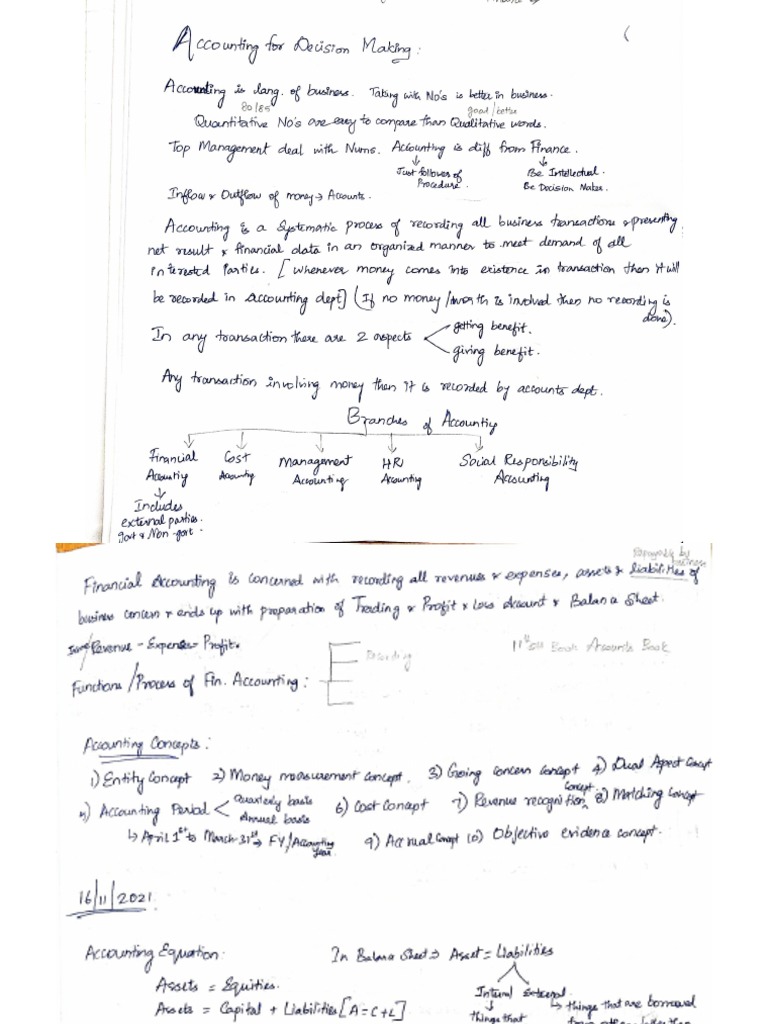 Accounting for Decision Making:
Accounting is lang. of business. Talking with No's is better in business.
80/85 good/better
Quantitative No's are easy to compare than Qualitative words.
Top Management deal with Nums. Accounting is diff from Finance.
Just follows of Procedure. Be Intellectual.
Be Decision Maker.
Inflow & Outflow of money → Accounts.
Accounting is a systematic process of recording all business transactions & presenting
net result & financial data in an organized manner to meet demand of all
interested Parties. [Whenever money comes into existence in transaction then it will
be recorded in Accounting dept] (If no money/worth is involved then no recording is
done).
In any transaction there are 2 aspects
getting benefit.
giving benefit.
Any transaction involving money then it is recorded by accounts dept.
Branches of Accounting
Financial Accounting Cost Accounting Management Accounting HR Accounting Social Responsibility Accounting
Includes
external parties.
govt & Non-govt.
Financial Accounting is concerned with recording all revenues & expenses, assets & liabilities of
business concern & ends up with preparation of Trading & Profit & Loss Account & Balance Sheet.
Revenue - Expense = Profit.
Recording
11th Book Accounts Book
Functions/Process of Fin. Accounting:
Accounting Concepts:
1) Entity Concept 2) Money measurement concept. 3) Going concern concept 4) Dual Aspect Concept
5) Accounting Period < Quarterly basis Annual basis 6) Cost Concept 7) Revenue recognition concept 8) Matching concept
↳ April 1st to March 31st → FY/Accounting year. 9) Accrual concept 10) Objective evidence concept.
16/11/2021
Accounting Equation. In Balance Sheet → Asset = Liabilities
Assets = Equities. Internal External
Assets = Capital + Liabilities [A=C+L] things that things that are borrowed